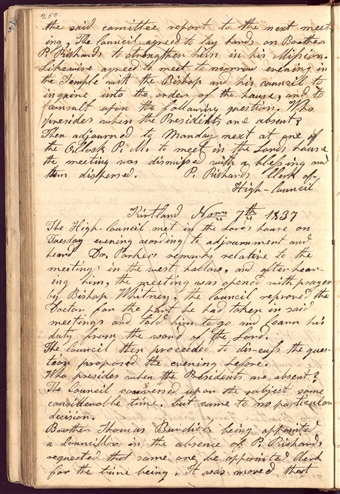 252
the said committee report to the next meet
ing. The Council agreed to lay hands on Brother
P. Richards to strengthen him in his mission.
Likewise agreed to meet to morrow evening in
the Temple with the Bishop and his council to
inquire into the order of the house, and to
consult upon the following question. Who
presides when the Presidents are absent?
Then adjourned to Monday next at one of
the Clock P. M. to meet in the Lords house
the meeting was dismissed with a blessing and
then dispersed. P. Richards Clerk of
High-Council
Kirtland 7th 1837
The High Council met in the Lords house on
Tuesday evening according to adjournment and
heard Dr. Parkers remarks relative to the
meetings in the west hallow, and after hear
ing him, the meeting was opened with prayer
by Bishop Whitney, the Council reproved the
Doctor for the part he had taken in said
meetings and told him to go and learn his
duty from the word of the Lord.
The Council then proceeded to discuss the ques
tion proposed the evening before.
Who presides when the Presidents are absent?
The Council conversed upon the subject some
considerable time, but came to no particular
decision.
Brother Thomas Burdick being appointed
a councillor in the absence of P. Richards
requested that some one be appointed Clerk
for the time being. It was moved that